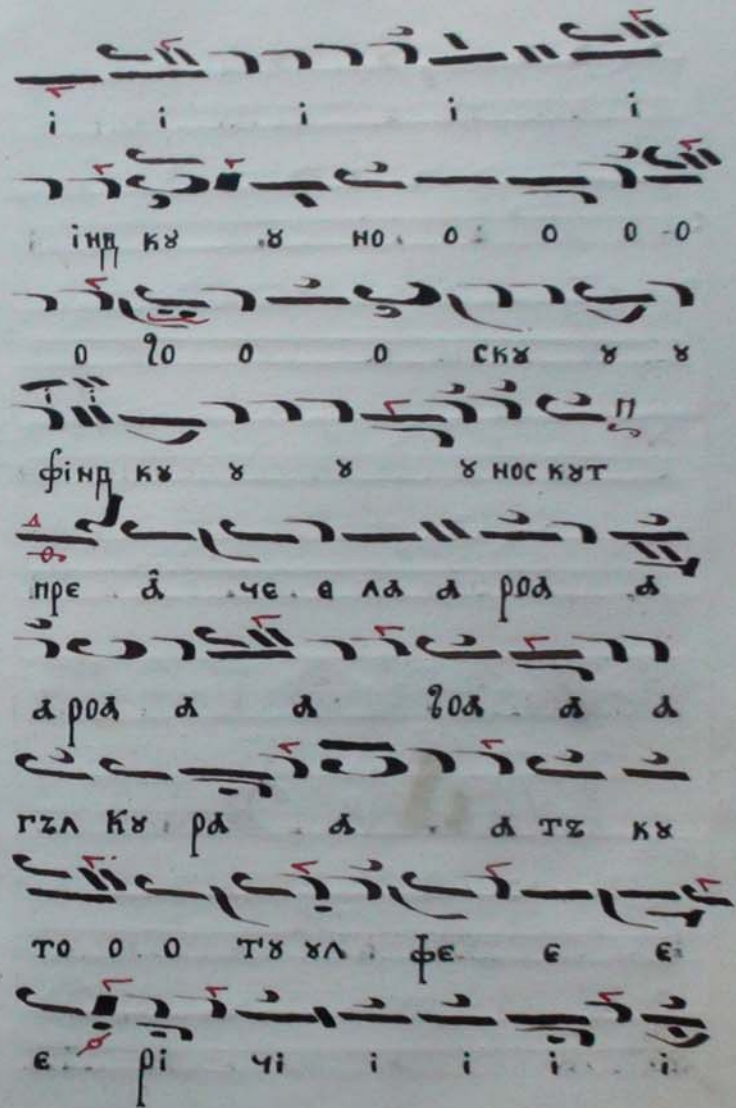 і і і і і
інд кꙋ ꙋ но о о о о
о ꙋо о о скꙋ ꙋ ꙋ
фінд кꙋ ꙋ ꙋ ꙋ нос кꙋт
пре а̂ че е ла а роа а
а роа а а а а
гъл кꙋ ра а а тъ кꙋ
то о о тꙋ ꙋл фе е е
е рі чі і і і і